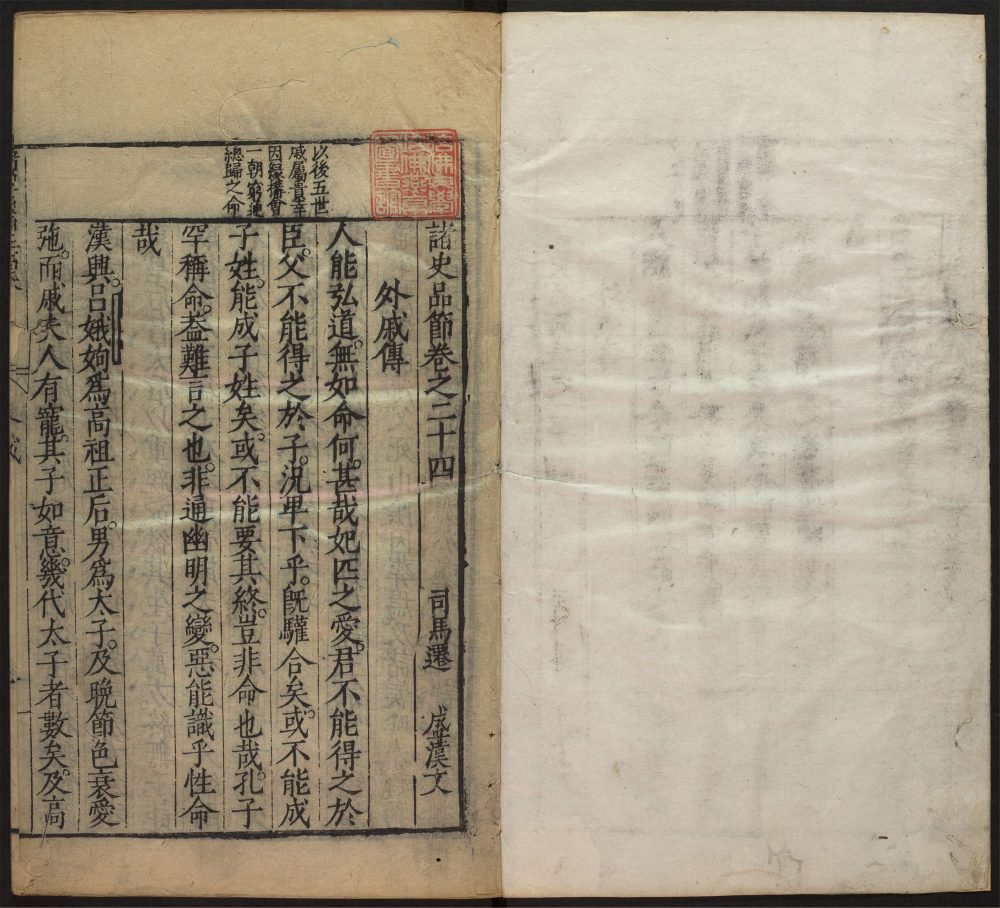 諸史品節卷之二十四 司馬遷 盛漢文
外戚傳
人能弘道。無如命何。甚哉妃匹之愛。君不能得之於
臣。父不能得之於子。況卑下乎。旣驩合矣。或不能成
子姓。能成子姓矣。或不能要其終。豈非命也哉。孔子
罕稱命。葢難言之也。非通幽明之變。惡能識乎性命
哉
漢興。呂娥姁爲高祖正后。男爲太子。及晚節色衰愛
弛。而戚夫人有寵。其子如意。幾代太子者數矣。及高
以後五世
戚屬貴幸
因緣搆會
一朝窮通
總歸之命
哈佛大學
圖書館